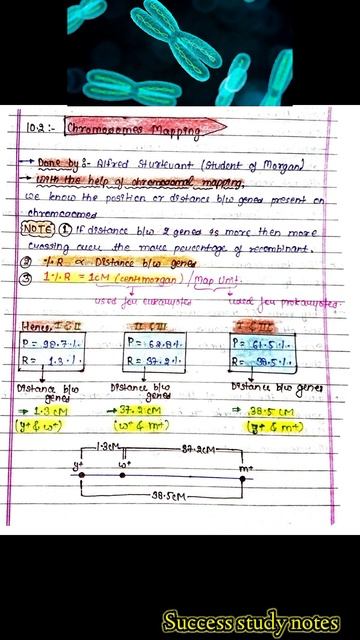 10.2:- Chromosomes Mapping
→ Done by :- Alfred Sturtevant (Student of Morgan)
→ With the help of chromosomal mapping,
we know the position or distance b/w genes present on
chromosomes
NOTE ① If distance b/w 2 genes is more then more
crossing over the more percentage of recombinant.
② %R ∝ Distance b/w genes
③ 1% R = 1CM (centimorgan) / Map Unit.
used for eukaryotes used for prokaryotes.
Hence, I & II II & III I & III
P = 98.7% P = 62.8% P = 61.5%
R = 1.3% R = 37.2% R = 38.5%
Distance b/w genes Distance b/w genes Distance b/w genes
⇒ 1.3 CM → 37.2 CM ⇒ 38.5 CM
(y+ & w+) (w+ & m+) (y+ & m+)
1.3CM 37.2CM
y+ w+ m+
38.5CM
Success study notes